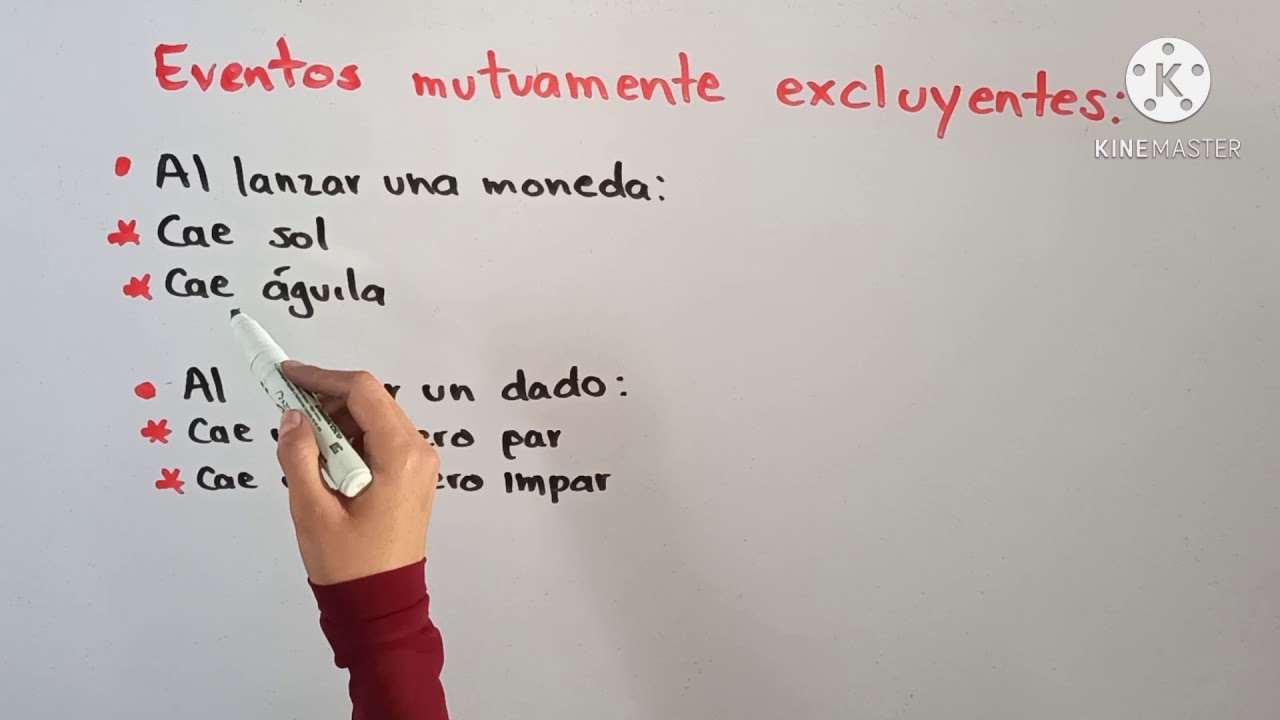 Eventos mutuamente excluyentes:
KINEMASTER
• Al lanzar una moneda:
* Cae sol
* Cae águila
• Al un dado:
* Cae par
* Cae impar